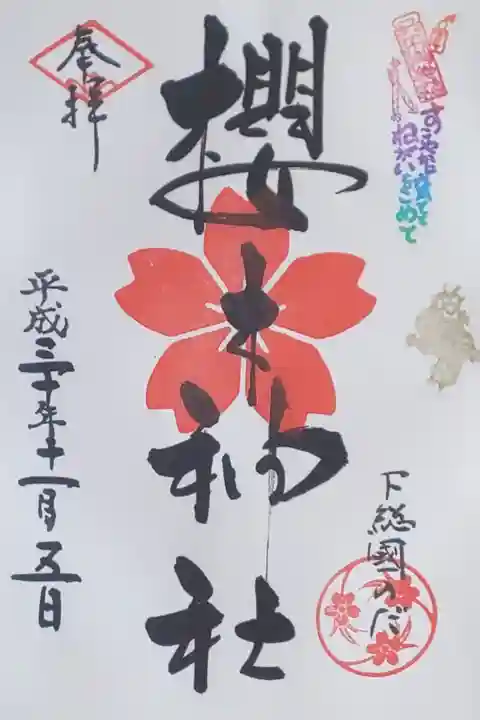 奉拝
櫻木神社
平成三十年十一月五日
下総國のだ
ねがいをこめて